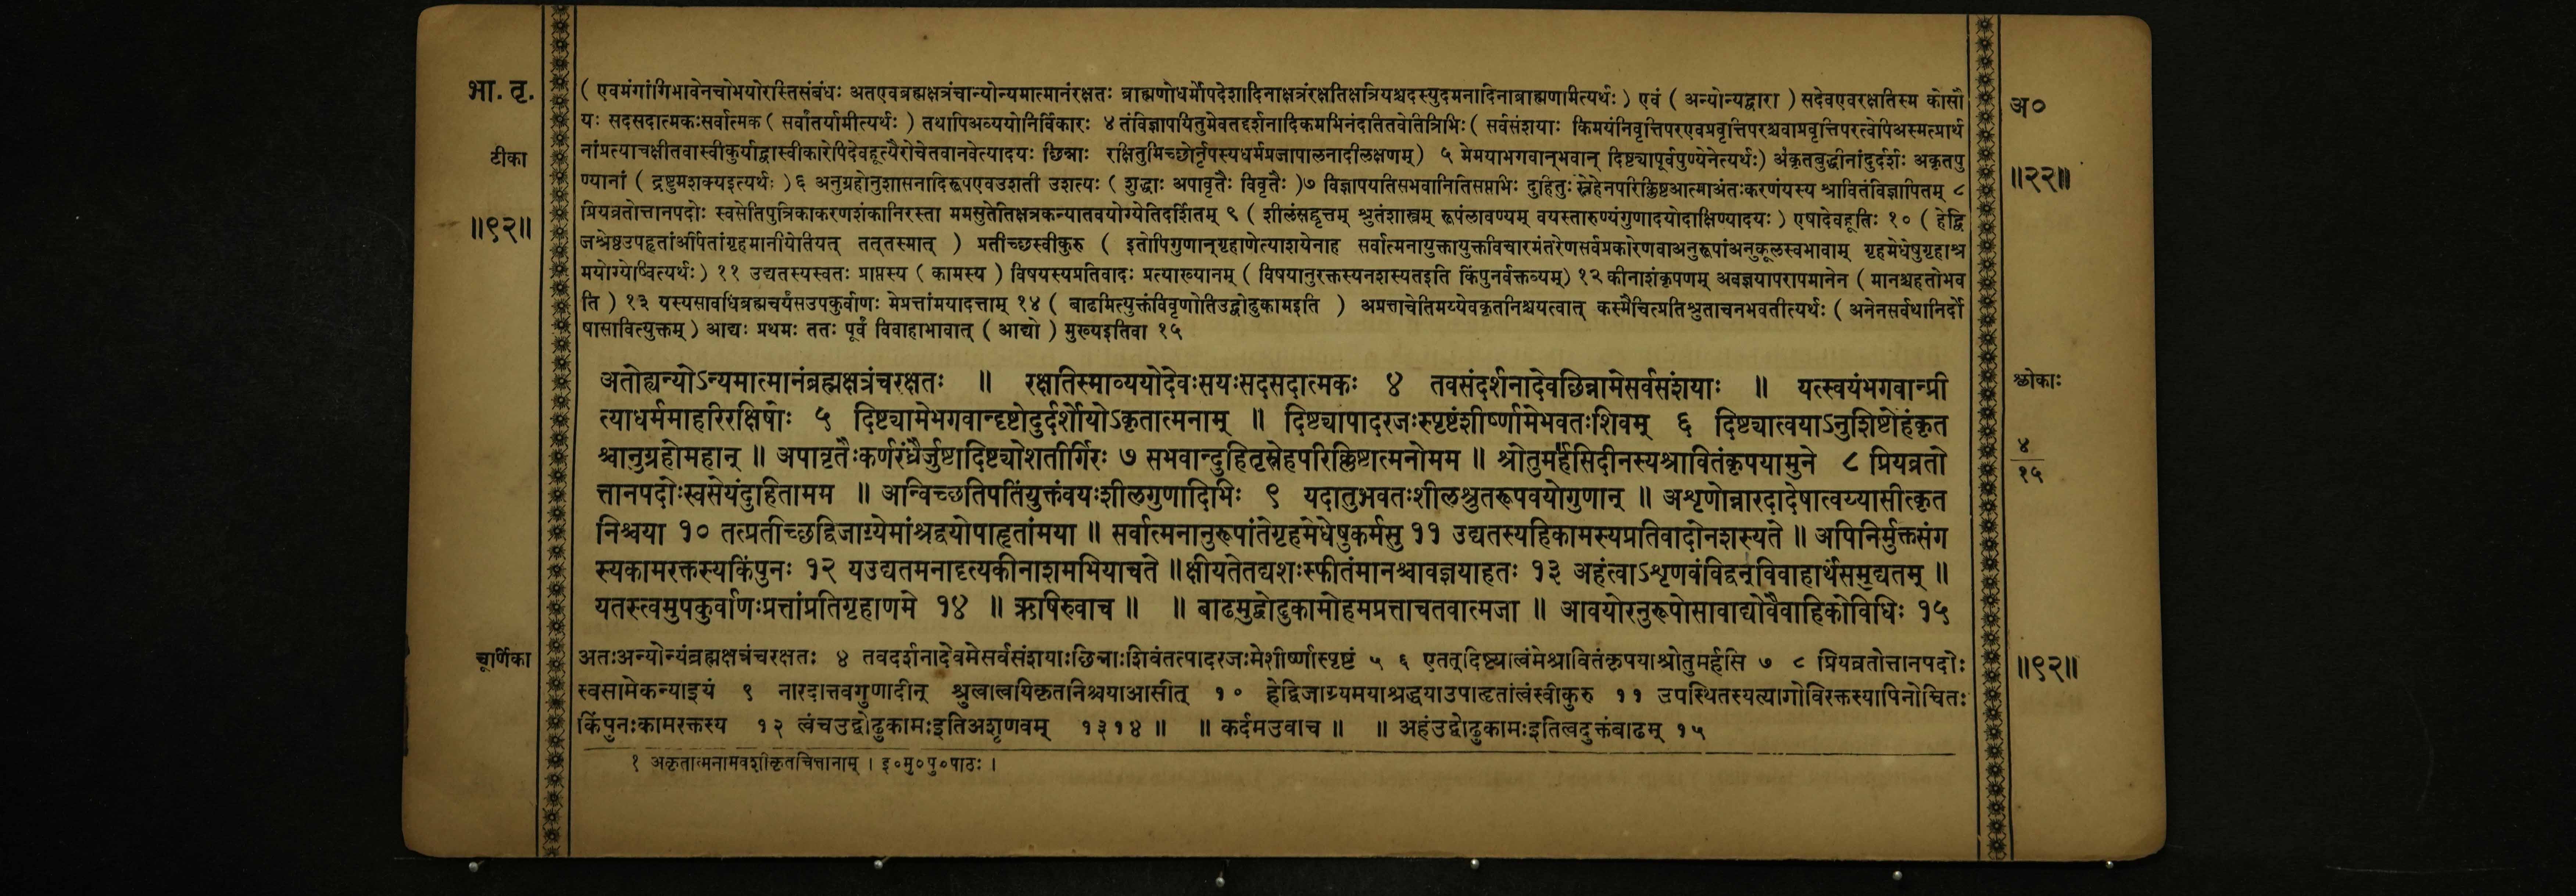 भा. तृ.
टीका
॥९२॥
( एवमंगांगिभावेनचोभयोरस्तिसंबंधः अतएवब्रह्मक्षत्रंचान्योन्यमात्मानंरक्षतः ब्राह्मणोधर्मोपदेशादिनाक्षत्रंरक्षतिक्षत्रियश्चदस्युदमनादिनाब्राह्मणामीत्यर्थः ) एवं ( अन्योन्यद्वारा ) सदेवएवरक्षतिस्म कोसौ
यः सदसदात्मकःसर्वात्मक ( सर्वांतर्यामीत्यर्थः ) तथापिअव्ययोनिर्विकारः ४ तंविज्ञापयितुमेवतद्दर्शनादिकमभिनंदातितवेतित्रिभिः ( सर्वसंशयाः किमयंनिवृत्तिपरएवप्रवृत्तिपरश्चवाप्रवृत्तिपरत्वेपिअस्मत्प्रार्थ
नांप्रत्याचक्षीतवास्वीकुर्याद्वास्वीकारेपिदेवहूत्यैरोचेतवानवेत्यादयः छिन्नाः रक्षितुमिच्छोर्नृपस्यधर्मप्रजापालनादीलक्षणम्) ५ मेमयाभगवान्भवान् दिष्ट्यापूर्वपुण्येनेत्यर्थः) अकृतबुद्धीनांदुर्दर्शः अकृतपु
ण्यानां ( द्रष्टुमशक्यइत्यर्थः )६ अनुग्रहोनुशासनादिरूपएवउशती उशत्यः ( शुद्धाः अपावृतैः विवृतैः )७ विज्ञापयतिसभवानितिसप्तभिः दुहितुः स्नेहेनपरिक्लिष्टआत्माअंतःकरणंयस्य श्रावितंविज्ञापितम् ८
प्रियव्रतोत्तानपदोः स्वसेतिपुत्रिकाकरणशंकानिरस्ता ममसुतेतिक्षत्रकन्यातवयोग्येतिदर्शितम् ९ ( शीलंसद्वृत्तम् श्रुतंशास्त्रम् रूपंलावण्यम् वयस्तारुण्यंगुणादयोदाक्षिण्यादयः ) एषादेवहूतिः १० ( हेद्वि
जश्रेष्ठउपहृतांअर्पितांगृहमानीयेतियत् तत्तस्मात् ) प्रतीच्छस्वीकुरु ( इतोपिगुणान्गृहाणेत्याशयेनाह सर्वात्मनायुक्तायुक्तविचारमंतरेणसर्वप्रकारेणवाअनुरूपांअनुकूलस्वभावाम् गृहमेधेषुगृहाश्र
मयोग्येष्वित्यर्थः ) ११ उद्यतस्यस्वतः प्राप्तस्य ( कामस्य ) विषयस्यप्रतिवादः प्रत्याख्यानम् ( विषयानुरक्तस्यनशस्यतइति किंपुनर्वक्तव्यम्) १२ कीनाशंकृपणम् अवज्ञयापरापमानेन ( मानश्चहतोभव
ति ) १३ यस्यसावधिब्रह्मचर्यंसउपकुर्वाणः मेप्रत्तांमयादत्ताम् १४ ( बाढमित्युक्तंविवृणोतिउद्वोढुकामइति ) अप्रत्ताचेतिमय्येवकृतनिश्चयत्वात् कस्मैचित्प्रतिश्रुताचनभवतीत्यर्थः ( अनेनसर्वथानिर्दो
षासावित्युक्तम् ) आद्यः प्रथमः ततः पूर्वं विवाहाभावात् ( आद्यो ) मुख्यइतिवा १५
अतोह्यन्योऽन्यमात्मानंब्रह्मक्षत्रंचरक्षतः ॥ रक्षतिस्माव्ययोदेवःसयःसदसदात्मकः ४ तवसंदर्शनादेवछिन्नामेसर्वसंशयाः ॥ यत्स्वयंभगवान्प्री
त्याधर्ममाहरिरक्षिषोः ५ दिष्ट्यामेभगवान्दृष्टोदुर्दर्शोयोऽकृतात्मनाम् ॥ दिष्ट्यापादरजःस्पृष्टंशीर्ष्णामेभवतःशिवम् ६ दिष्ट्यात्वयाऽनुशिष्टोहंकृत
श्चानुग्रहोमहान् ॥ अपावृतैःकर्णरंध्रैर्जुष्टादिष्ट्योशतीर्गिरः ७ सभवान्दुहितृस्नेहपरिक्लिष्टात्मनोमम ॥ श्रोतुमर्हसिदीनस्यश्रावितंकृपयामुने ८ प्रियव्रतो
त्तानपदोःस्वसेयंदुहितामम ॥ अन्विच्छतिपतिंयुक्तंवयःशीलगुणादिभिः ९ यदातुभवतःशीलश्रुतरूपवयोगुणान् ॥ अशृणोन्नारदादेषात्वय्यासीत्कृत
निश्चया १० तत्प्रतीच्छद्विजाग्र्येमांश्रद्धयोपाहृतांमया ॥ सर्वात्मनानुरूपांतेगृहमेधेषुकर्मसु ११ उद्यतस्यहिकामस्यप्रतिवादोनशस्यते ॥ अपिनिर्मुक्तसंग
स्यकामरक्तस्यकिंपुनः १२ यउद्यतमनादृत्यकीनाशमभियाचते ॥क्षीयतेतद्यशःस्फीतंमानश्चावज्ञयाहतः १३ अहंत्वाऽशृणवंविद्वन्विवाहार्थंसमुद्यतम् ॥
यतस्त्वमुपकुर्वाणःप्रत्तांप्रतिगृहाणमे १४ ॥ ऋषिरुवाच ॥ ॥ बाढमुद्वोढुकामोहमप्रत्ताचतवात्मजा ॥ आवयोरनुरूपोसावाद्योवैवाहिकोविधिः १५
चूर्णिका
अतःअन्योन्यंब्रह्मक्षत्रंचरक्षतः ४ तवदर्शनादेवमेसर्वसंशयाःछिन्नाःशिवंतत्पादरजःमेशीर्ष्णास्पृष्टं ५ ६ एतत्दिष्ट्यात्वंमेश्रावितंकृपयाश्रोतुमर्हसि ७ ८ प्रियव्रतोत्तानपदोः
स्वसामेकन्याइयं ९ नारदात्तवगुणादीन् श्रुत्वात्वयिकृतनिश्चयाआसीत् १० हेद्विजाग्र्यमयाश्रद्धयाउपाहृतांत्वंस्वीकुरु ११ उपस्थितस्यत्यागोविरक्तस्यापिनोचितः
किंपुनःकामरक्तस्य १२ त्वंचउद्वोढुकामःइतिअशृणवम् १३१४ ॥ ॥ कर्दमउवाच ॥ ॥ अहंउद्वोढुकामःइतित्वदुक्तंबाढम् १५
१ अकृतात्मनामवशीकृतचित्तानाम् । इ०मु०पु०पाठः ।
अ०
॥२२॥
श्लोकाः
४
१५
॥९२॥